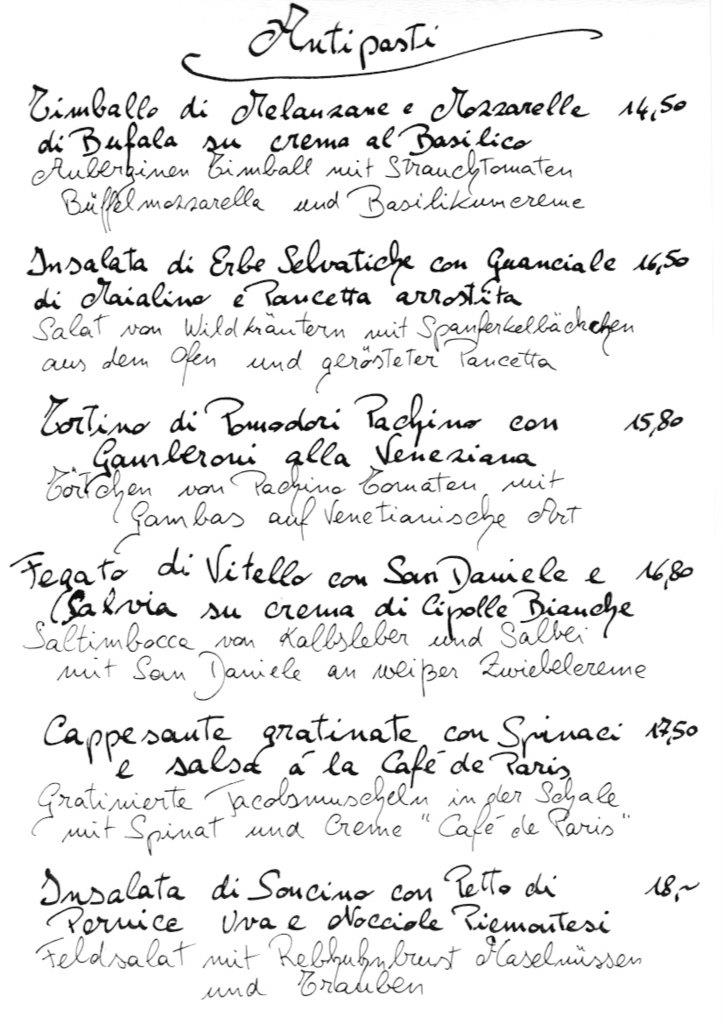 Antipasti
Timballo di Melanzane e Mozzarelle 14,50
di Bufala su crema al Basilico
Auberginen Timball mit Strauchtomaten
Büffelmozzarella und Basilikumcreme
Insalata di Erbe Selvatiche con Guanciale 16,50
di Maialino e Pancetta arrostita
Salat von Wildkräutern mit Spanferkelbäckchen
aus dem Ofen und gerösteter Pancetta
Tortino di Pomodori Pachino con 15,80
Gamberoni alla Veneziana
Törtchen von Pachino Tomaten mit
Gambas auf Venetianische Art
Fegato di Vitello con San Daniele e 16,80
Salvia su crema di Cipolle Bianche
Saltimbocca von Kalbsleber und Salbei
mit San Daniele an weißer Zwiebelcreme
Cappesante gratinate con Spinaci 17,50
e salsa á la Café de Paris
Gratinierte Jacobsmuscheln in der Schale
mit Spinat und Creme "Café de Paris"
Insalata di Soncino con Petto di 18,~
Pernice Uva e Nocciole Piemontesi
Feldsalat mit Rebhuhnbrust Haselnüssen
und Trauben